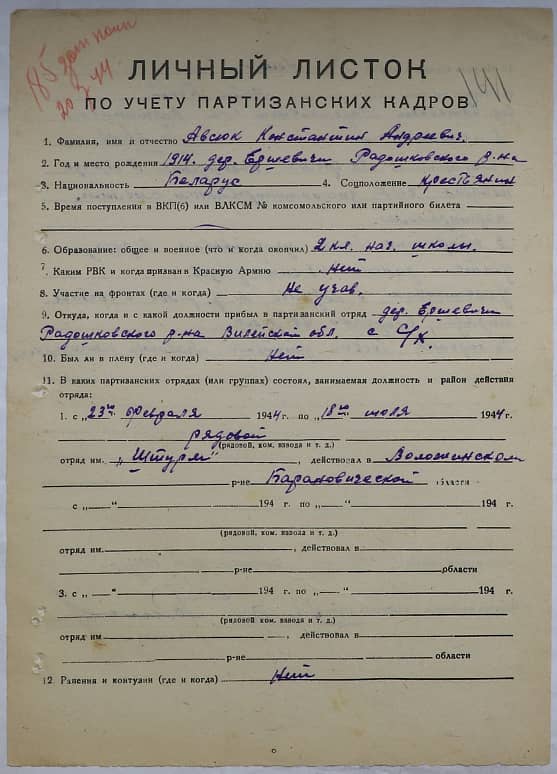 185
20 3 44
ЛИЧНЫЙ ЛИСТОК
141
ПО УЧЕТУ ПАРТИЗАНСКИХ КАДРОВ
1. Фамилия, имя и отчество Авсюк Константин Андреевич.
2. Год и место рождения 1914. дер. Ершевичи Радошковского р-на
3. Национальность Беларус 4. Соцположение крестьянин
5. Время поступления в ВКП(б) или ВЛКСМ № комсомольского или партийного билета
6. Образование: общее и военное (что и когда окончил) 2 кл. нач. школы.
7. Каким РВК и когда призван в Красную Армию нет
8. Участие на фронтах (где и когда) Не учав.
9. Откуда, когда и с какой должности прибыл в партизанский отряд дер. Ершевичи
Радошковского р-на Вилейской обл. с С/х.
10. Был ли в плену (где и когда) нет
11. В каких партизанских отрядах (или группах) состоял, занимаемая должность и район действия
отряда:
1. с „23" февраля 1944 г. по „18" июля 1944 г.
рядовой
(рядовой, ком. взвода и т. д.)
отряд им. „Штурм", действовал в Воложинском
р-не Барановической области
с „—“ 194 г. по „—“ 194 г.
(рядовой, ком. взвода и т. д.)
отряд им. , действовал в
р-не области
3. с „—“ 194 г. по „—“ 194 г.
(рядовой, ком. взвода и т. д.)
отряд им , действовал в
р-не области
12. Ранения и контузии (где и когда) Нет